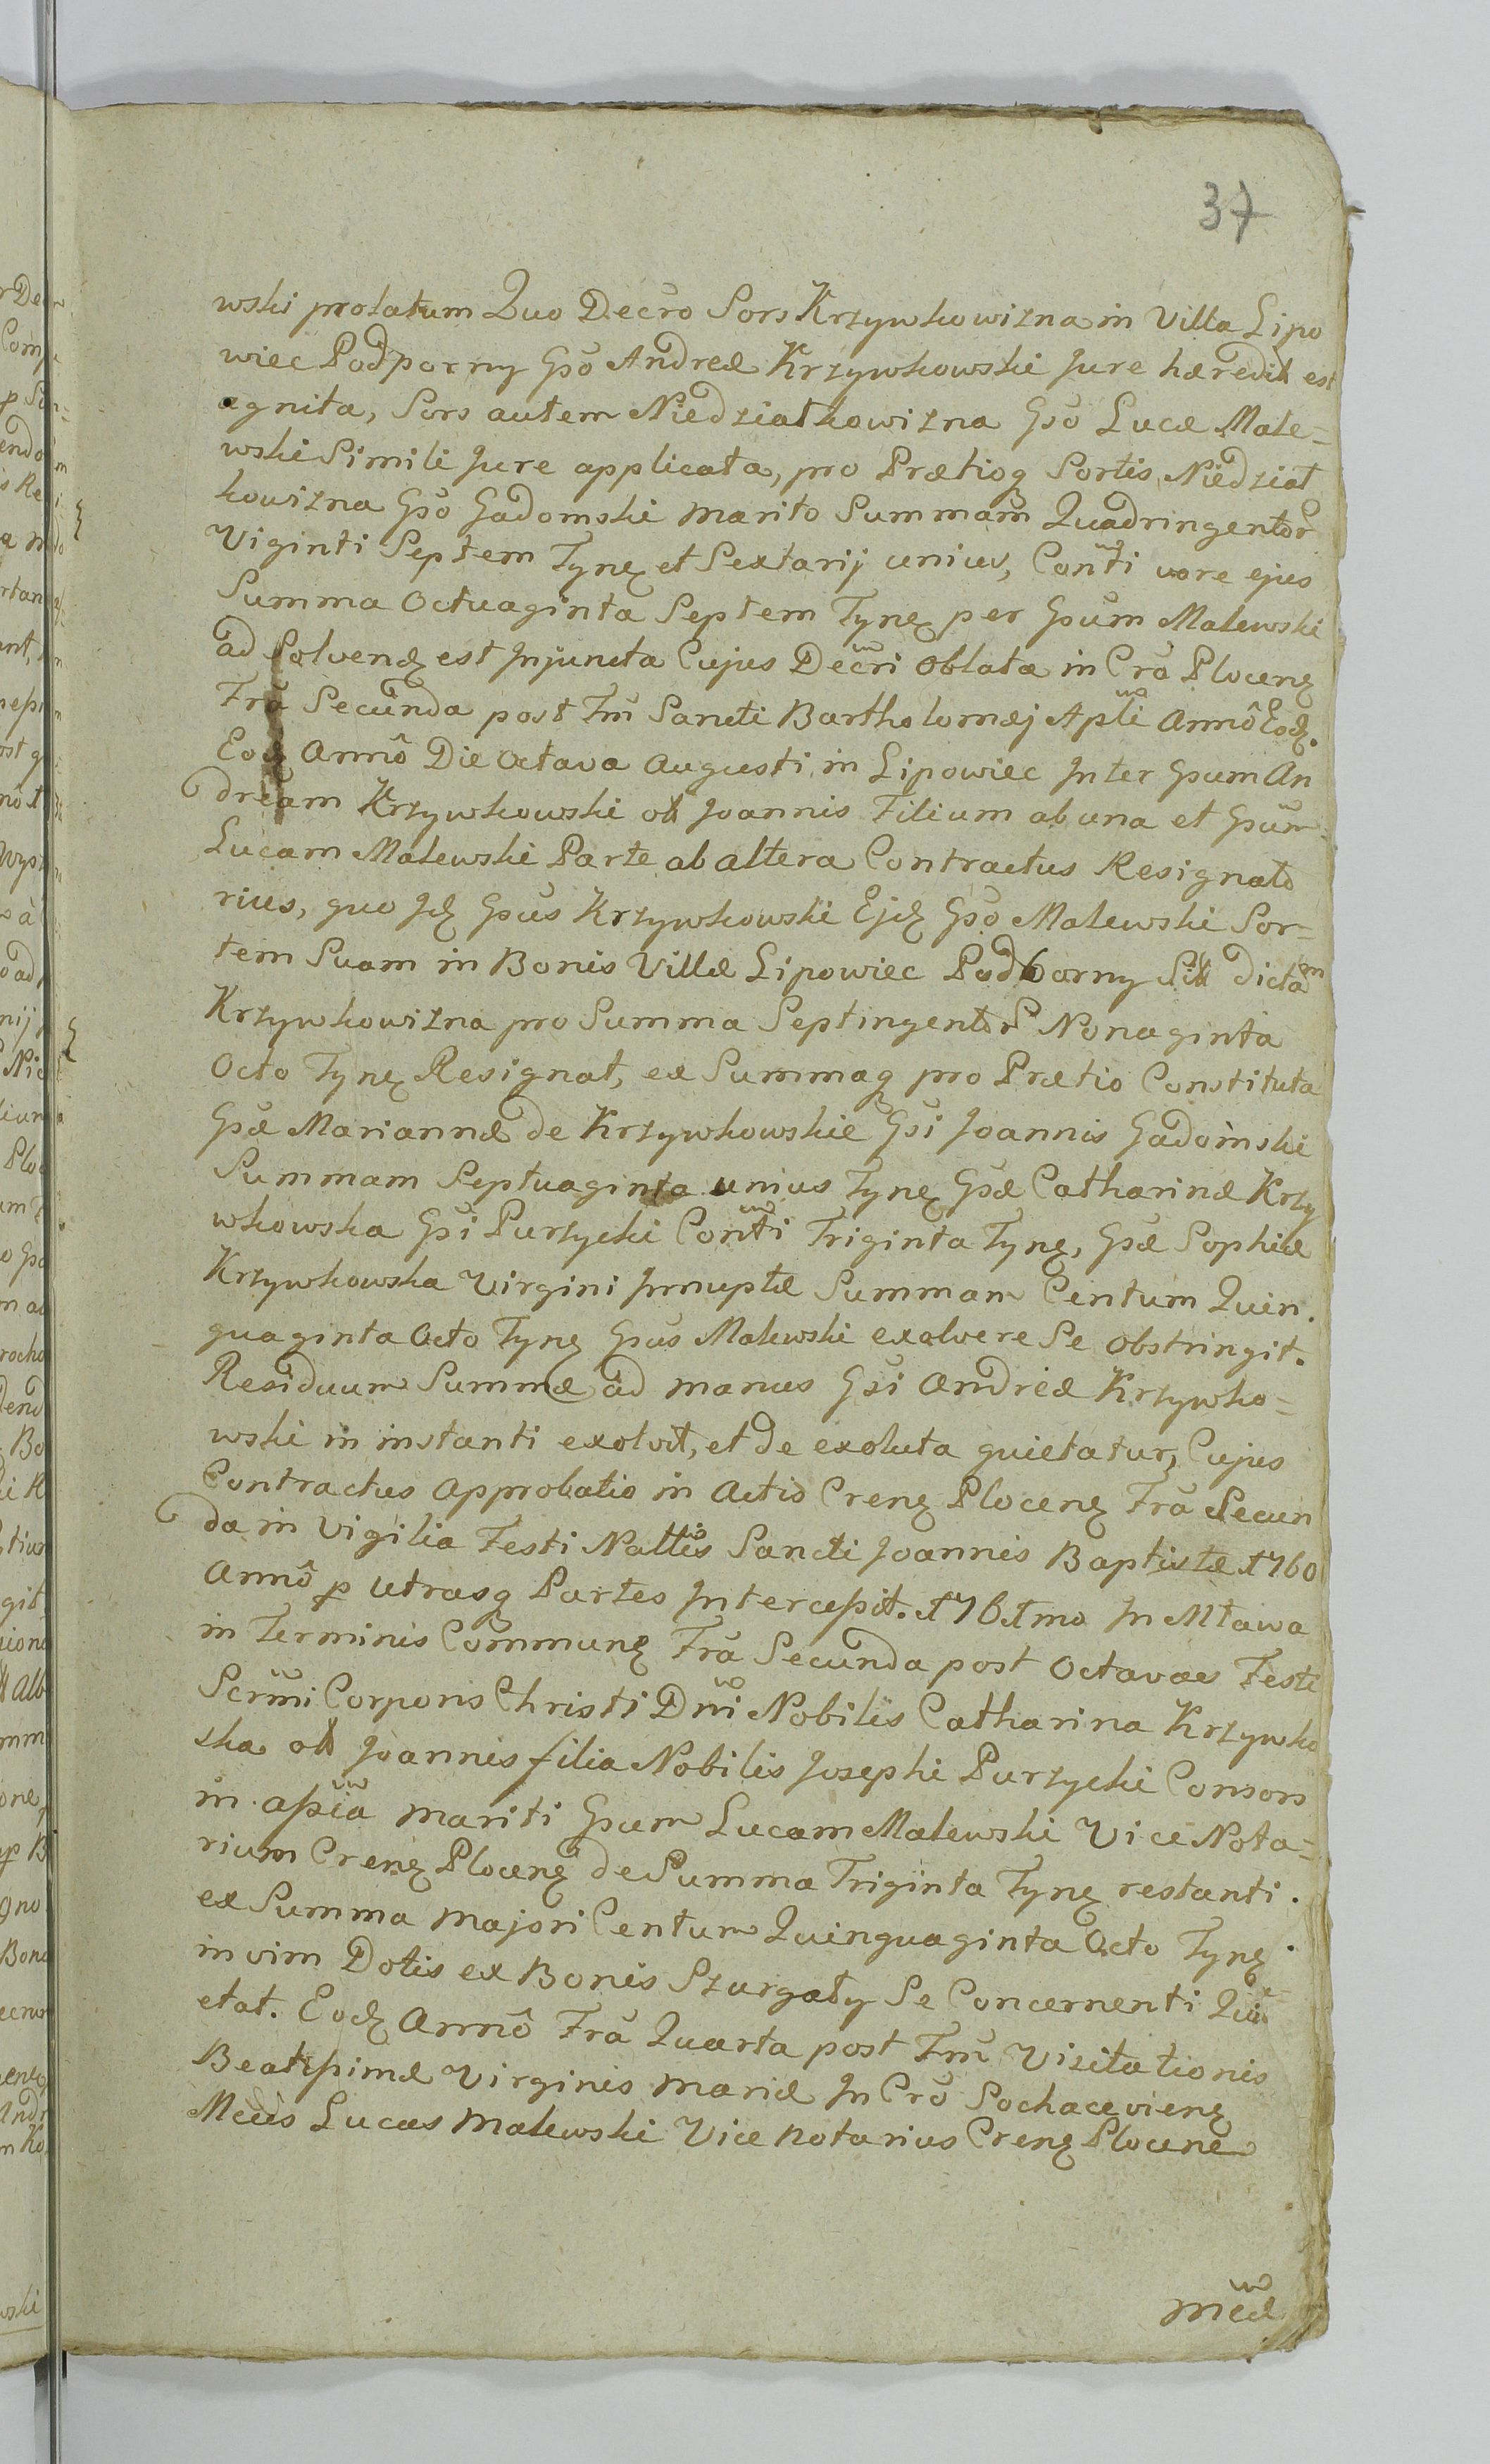 37
wski prolatum Quo Decro Sors Krzywkowizna in Villa Lipo
wiec Podporny Gso Andreæ Krzywkowski Jure hæredit est
agnita, Sors autem Niedziałkowizna Gso Lucæ Male=
wski Simili Jure applicata, pro Prætioq Sortis Niedział
kowizna Gso Gadomski Marito Summam Quadringentor
Viginti Septem Tynf et Sextarij unius, Conti vero ejus
Summa Octuaginta Septem Tynf per Gsum Malewski
ad Solvend est Injuncta Cujus Decri Oblata in Cra Plocen
Fra Secunda post Fm Sancti Bartholomæj Apli Annô Eod.
Eod Annô Die Octava Augusti in Lipowiec Inter Gsum An
dream Krzywkowski olł Joannis Filium ab una et Gsum
Lucam Malewski Parte ab altera Contractus Resignato
rius, quo Id Gsus Krzywkowski Ejd Gso Malewski Sor=
tem Suam in Bonis Villæ Lipowiec Podborny Sit dictam
Krzywkowizna pro Summa Septingentor Nonaginta
Octo Tynf Resignat, ex Summaq pro Prætio Constituta
Gsæ Mariannæ de Krzywkowskie Gsi Joannis Gadomski
Summam Septuaginta unius Tynf Gsæ Catharinæ Krzy
wkowska Gsi Purzycki Conti Triginta Tynf, Gsæ Sophiæ
Krzywkowska Virgini Innuptæ Summam Centum Quin.
quaginta Octo Tynf Gsus Malewski exolvere Se Obstringit.
Residuum Summæ ad manus Gsi Andreæ Krzywko=
wski in instanti exolvit, et de exoluta quietatur, Cujus
Contractus Approbatio in Actis Cren Plocen Fra Secun
da in Vigilia Festi Natlis Sancti Joannis Baptistæ 1760
Annô p Utrasq Partes Intercessit. 1761mo In Mława
in Terminis Commun Fra Secunda post Octavas Festi
Scrmi Corporis Christi Dni Nobilis Catharina Krzywko
ska olł Joannis filia Nobilis Josephi Purzycki Consors
in assia Mariti Gsum Lucam Malewski Vice Nota=
rium Cren Plocen de Summa Triginta Tynf restanti.
ex Summa Majori Centum Quinquaginta Octo Tynf
in vim Dotis ex Bonis Szurgały Se Concernenti Qui=
etat. Eod Annô Fra Quarta post Fm Visitationis
Beatissimæ Virginis Mariæ In Cro Sochacevien
Mcus Lucas Malewski Vice Notarius Cren Plocen
mcæ